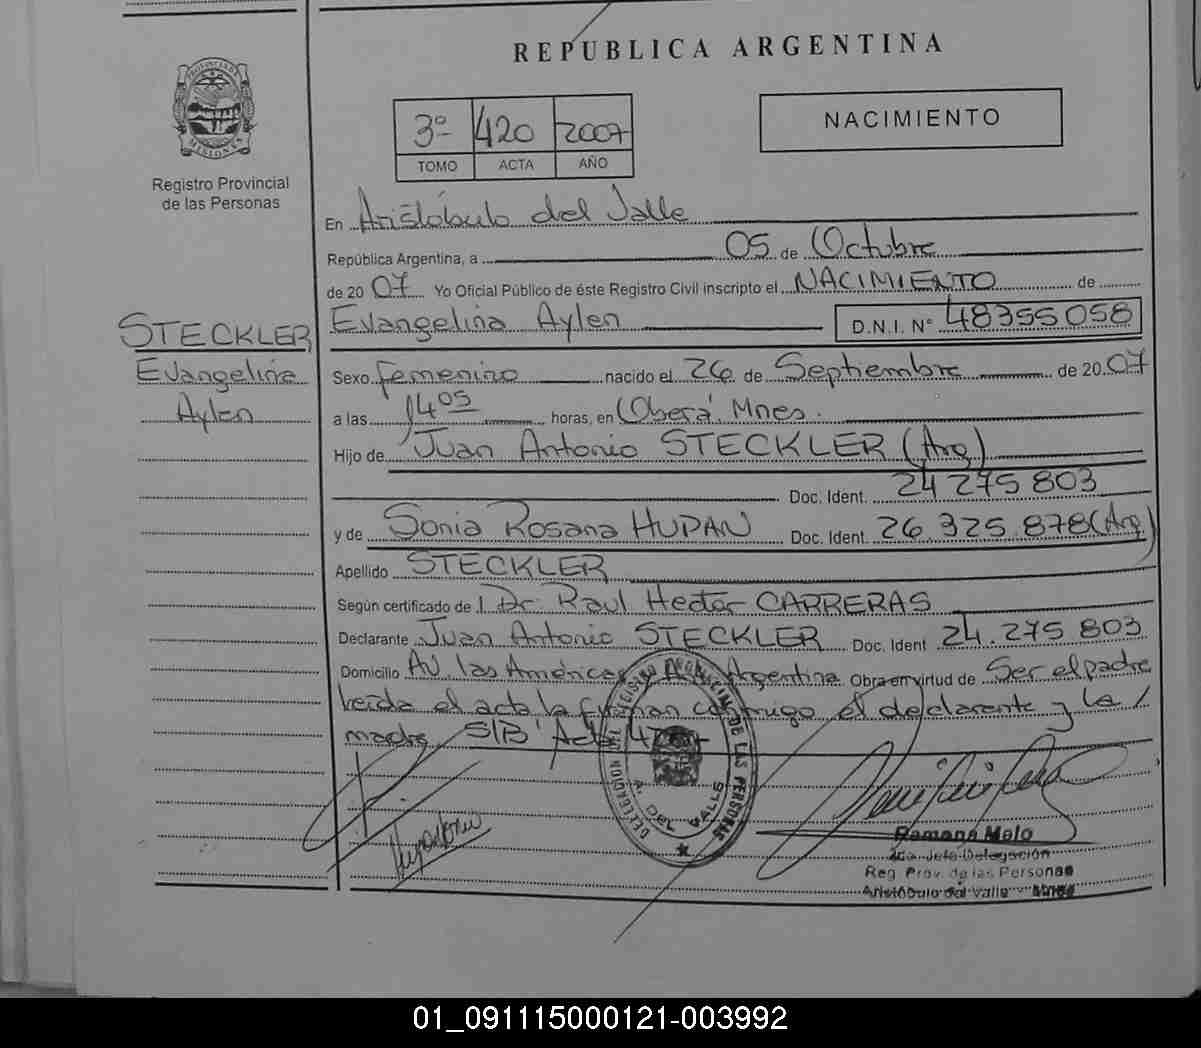 REPUBLICA ARGENTINA
PROVINCIA DE MISIONES
Registro Provincial
de las Personas
3º 420 2007
TOMO ACTA AÑO
NACIMIENTO
En Aristóbulo del Valle
República Argentina, a 05 de Octubre
de 2007 Yo Oficial Público de éste Registro Civil inscripto el NACIMIENTO de
Evangelina Aylen D.N.I. Nº 48355058
STECKLER
Evangelina
Aylen
Sexo femenino nacido el 26 de Septiembre de 2007
a las 14 05 horas, en Oberá Mnes.
Hijo de Juan Antonio STECKLER (Arg)
Doc. Ident. 24 275 803
y de Sonia Rosana HUPAN Doc. Ident. 26.325.878 (Arg)
Apellido STECKLER
Según certificado de Dr. Raul Hector CARRERAS
Declarante Juan Antonio STECKLER Doc. Ident 24.275 803
Domicilio AV. las Américas y Argentina Obra en virtud de Ser el padre
leída el acta la firman conmigo el declarante y la /
madre S/B Acta
DELEGACION DEL REGISTRO PROVINCIAL DE LAS PERSONAS
A. DEL VALLE
Ramona Melo
Jefe Delegación
Reg. Prov. de las Personas
Aristóbulo del Valle - Mnes
01_091115000121-003992